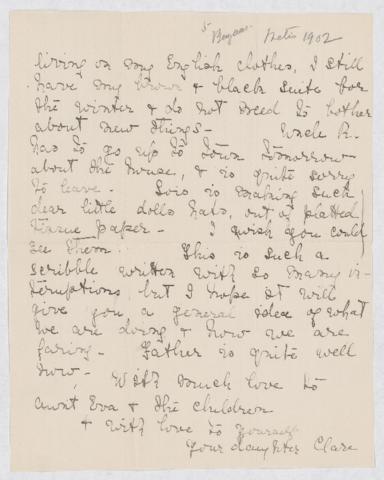 5
1902
living on my English clothes, I still
have my brown & black suits for
the winter & do not need to bother
about new things - Uncle R.
has to go up to town tomorrow
about the house, & is quite sorry
to leave - Lois is making such
dear little dolls hats, out of platted
tissue paper - I wish you could
see them. This is such a
scribble written with so many in-
teruptions, but I hope it will
give you a general idea of what
we are doing & how we are
faring - Father is quite well
now - With much love to
Aunt Eva & the children
& with love to yourself
Your daughter Clare